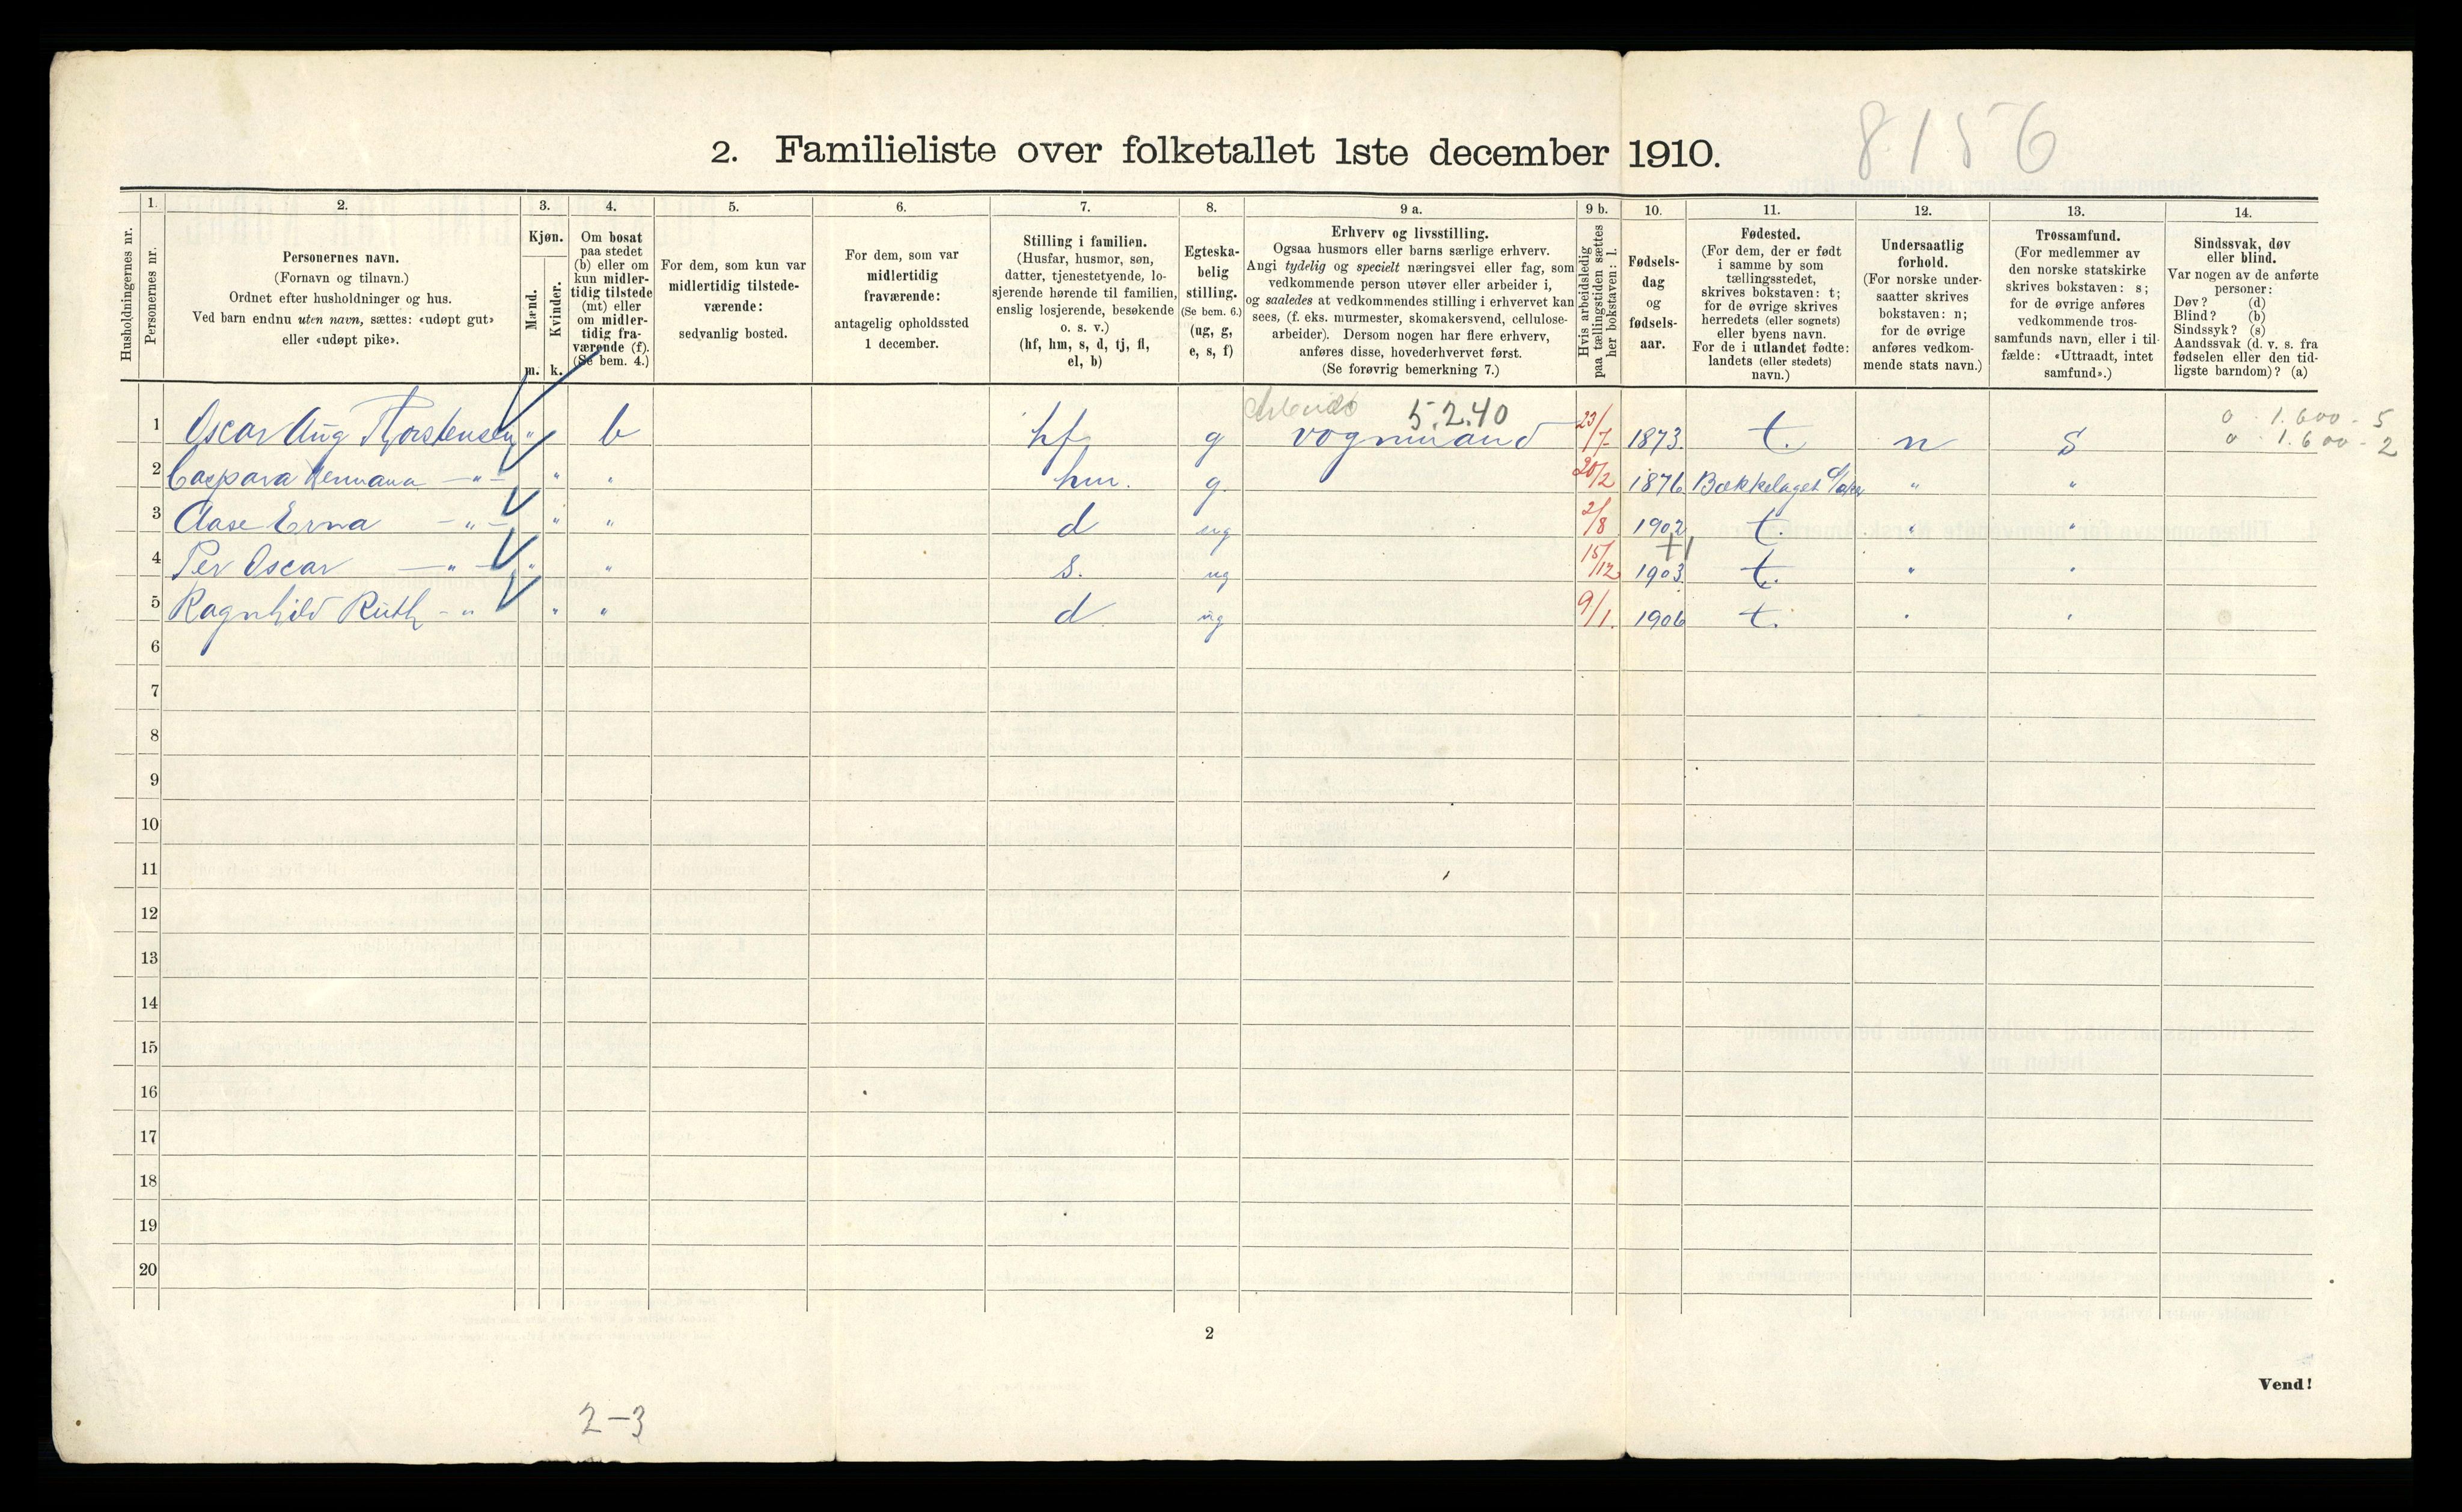 8156
2. Familieliste over folketallet 1ste december 1910.
Husholdningernes nr.
1.
Personernes nr.
2.
Personernes navn.
(Fornavn og tilnavn.)
Ordnet efter husholdninger og hus.
Ved barn endnu uten navn, sættes: «udøpt gut»
eller «udøpt pike».
3.
Kjøn.
Mænd.
Kvinder.
m. k.
4.
Om bosat
paa stedet
(b) eller om
kun midler-
tidig tilstede
(mt) eller
om midler-
tidig fra-
værende (f).
(Se bem. 4.)
5.
For dem, som kun var
midlertidig tilstede-
værende:
sedvanlig bosted.
6.
For dem, som var
midlertidig
fraværende:
antagelig opholdssted
1 december.
7.
Stilling i familien.
(Husfar, husmor, søn,
datter, tjenestetyende, lo-
sjerende hørende til familien,
enslig losjerende, besøkende
o. s. v.)
(hf, hm, s, d, tj, fl,
el, b)
8.
Egteska-
belig
stilling.
(Se bem. 6.)
(ug, g,
e, s, f)
9 a.
Erhverv og livsstilling.
Ogsaa husmors eller barns særlige erhverv.
Angi tydelig og specielt næringsvei eller fag, som
vedkommende person utøver eller arbeider i,
og saaledes at vedkommendes stilling i erhvervet kan
sees, (f. eks. murmester, skomakersvend, cellulose-
arbeider). Dersom nogen har flere erhverv,
anføres disse, hovederhvervet først.
(Se forøvrig bemerkning 7.)
9 b.
Hvis arbeidsledig
paa tællingstiden sættes
her bokstaven: l.
10.
Fødsels-
dag
og
fødsels-
aar.
11.
Fødested.
(For dem, der er født
i samme by som
tællingsstedet,
skrives bokstaven: t;
for de øvrige skrives
herredets (eller sognets)
eller byens navn.
For de i utlandet fødte:
landets (eller stedets)
navn.)
12.
Undersaatlig
forhold.
(For norske under-
saatter skrives
bokstaven: n;
for de øvrige
anføres vedkom-
mende stats navn.)
13.
Trossamfund.
(For medlemmer av
den norske statskirke
skrives bokstaven: s;
for de øvrige anføres
vedkommende tros-
samfunds navn, eller i til-
fælde: «Uttraadt, intet
samfund».)
14.
Sindssvak, døv
eller blind.
Var nogen av de anførte
personer:
Døv? (d)
Blind? (b)
Sindssyk? (s)
Aandssvak (d. v. s. fra
fødselen eller den tid-
ligste barndom)? (a)
5.2.40
0 - 1.600 - 5
1 Oscar Aug Thorstensen " b hf g vognmand 23/7 1873. t. n s 0 - 1.600 - 2
2 Caspara Hermana —"— " " hm. g. 20/2 1876 Bækkelaget " "
3 Aase Erna —"— " " d ug 2/8 1902 t. " "
4 Per Oscar —"— " " s. ug 15/12 1903. t. " "
5 Ragnhild Ruth - " " " d ug 9/1. 1906 t. " "
6
7
8
9
10
11
12
13
14
15
16
17
18
19
20
2
Vend!
2-3